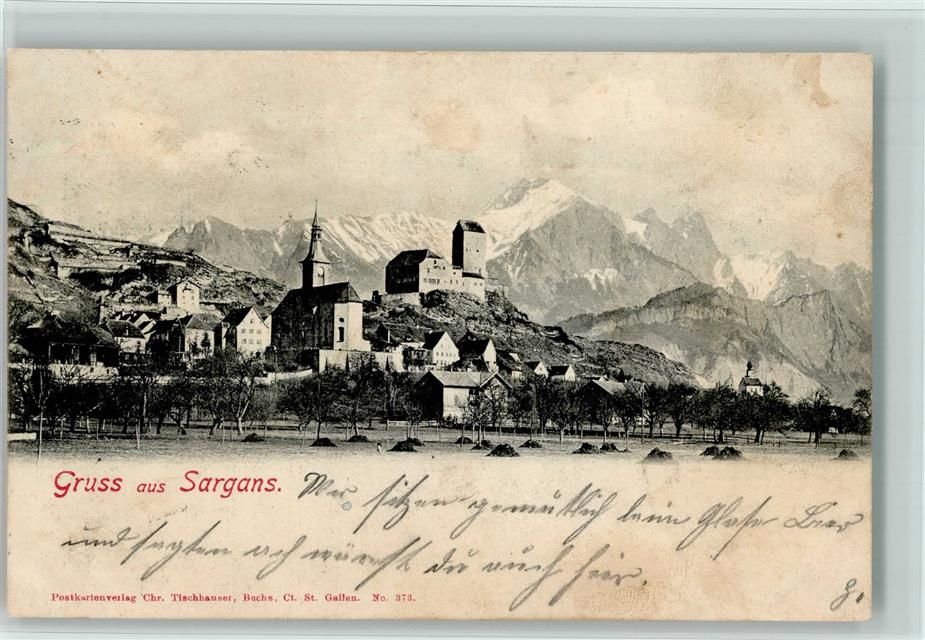 Gruss aus Sargans. Wir sitzen gemütlich beim Glase Bier
und sagten ach wärst du auch hier.
Postkartenverlag Chr. Tischhauser, Buchs, Ct. St. Gallen. No. 373.